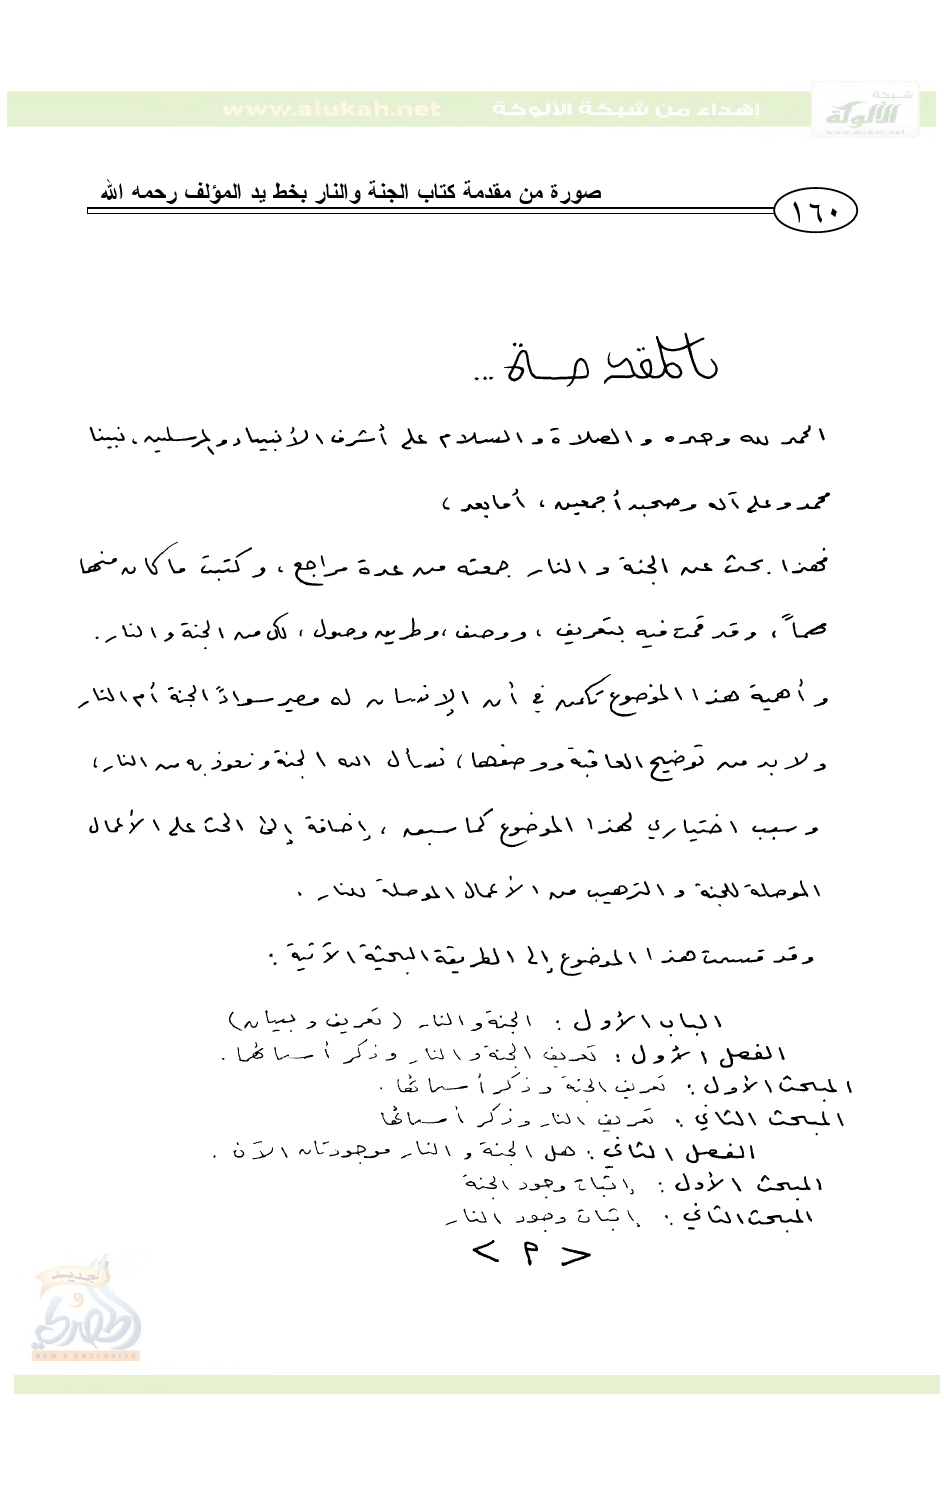 شبكة
الألوكة
www.alukah.net
إهداء من شبكة الألوكة
www.alukah.net
صورة من مقدمة كتاب الجنة والنار بخط يد المؤلف رحمه الله
١٦٠
المقدمة ...
الحمد لله وحده والصلاة والسلام على أشرف الأنبياء والمرسلين، نبينا
محمد وعلى آله وصحبه أجمعين، أما بعد،
فهذا بحث عن الجنة والنار جمعته من عدة مراجع، وكتبت ما كان منها
مهماً، وقد قمت فيه بتعريف، ووصف، وطريق وصول، لكل من الجنة والنار.
وأهمية هذا الموضوع تكمن في أن الإنسان له مصير سواءً الجنة أم النار
ولا بد من توضيح العاقبة ووصفها، نسأل الله الجنة ونعوذ به من النار،
وسبب اختياري لهذا الموضوع كما سبق، إضافة إلى الحث على الأعمال
الموصلة للجنة والترهيب من الأعمال الموصلة للنار.
وقد قسمت هذا الموضوع إلى الطريقة البحثية الآتية:
الباب الأول: الجنة والنار (تعريف وبيان)
الفصل الأول: تعريف الجنة والنار وذكر أسمائها.
المبحث الأول: تعريف الجنة وذكر أسمائها.
المبحث الثاني: تعريف النار وذكر أسمائها
الفصل الثاني: هل الجنة والنار موجودتان الآن.
المبحث الأول: إثبات وجود الجنة
المبحث الثاني: إثبات وجود النار
< م >
الجديد
و
الحصري
NEW & EXCLUSIVE